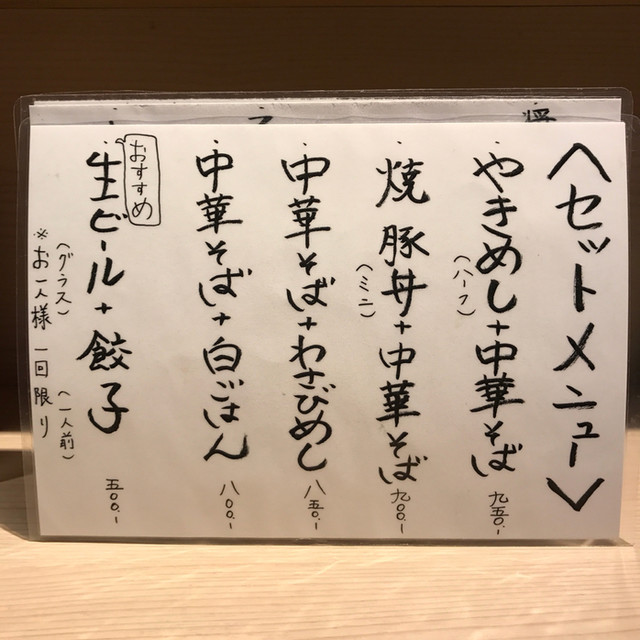 <セットメニュー>
・やきめし+中華そば 九五〇.-
(ハーフ)
・焼豚丼+中華そば 九〇〇.-
(ミニ)
・中華そば+わさびめし 八五〇.-
・中華そば+白ごはん 八〇〇.-
おすすめ
・生ビール+餃子 五〇〇.-
(グラス) (一人前)
※お一人様一回限り